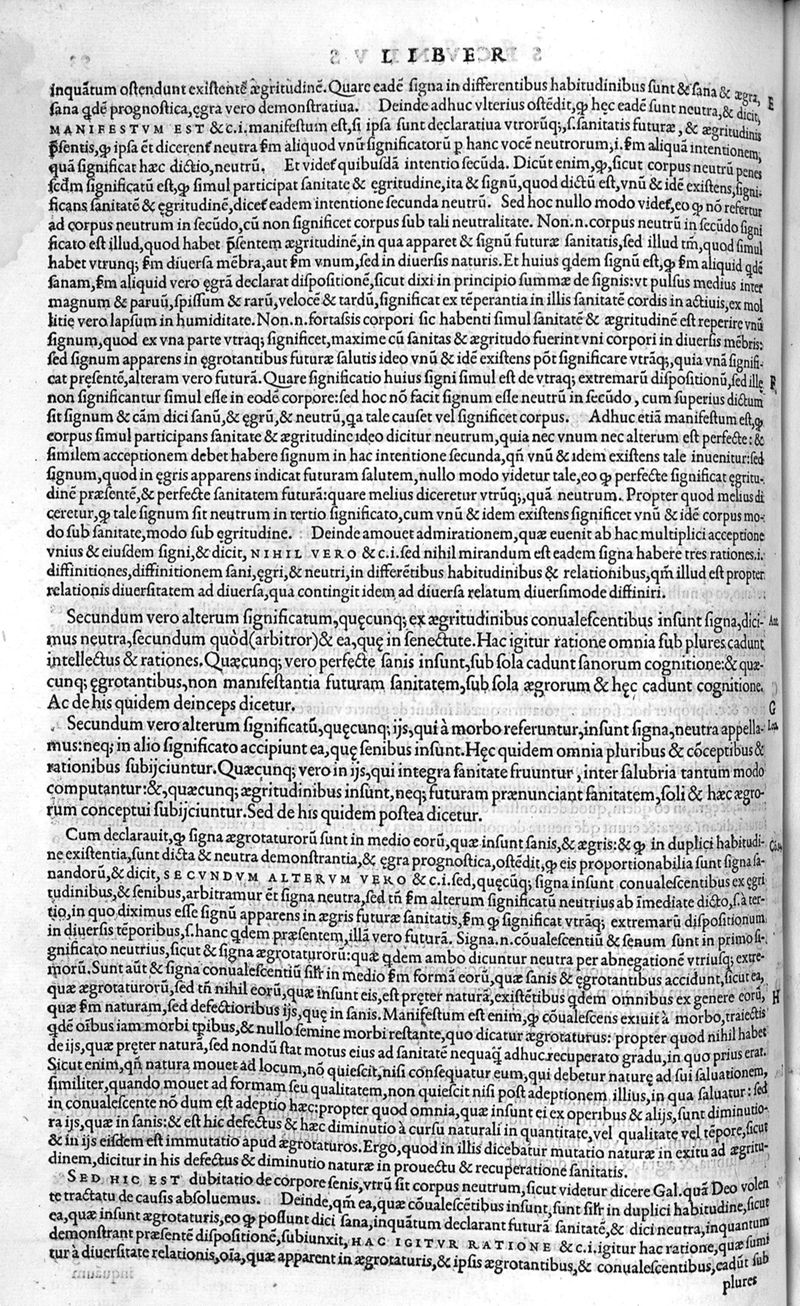 LIBER
inquãtum ostendunt existentẽ ægritudinẽ. Quare eadẽ signa in differentibus habitudinibus sunt & sana & ægra,
sana qdẽ prognostica, ęgra vero demonstratiua. Deinde adhuc vlterius ostẽdit, ꝙ hęc eadẽ sunt neutra, & dicit,
MANIFESTVM EST & c.i. manifestum est, si ipsa sunt declaratiua vtrorūq;, s. sanitatis futuræ, & ægritudinis
p̃sentis, ꝙ ipsa ẽt dicerent̃ neutra s̃m aliquod vnū significatorū p hanc vocẽ neutrorum, i. s̃m aliquã intentionem,
quã significat hæc dictio, neutrū. Et videt̃ quibusdã intentio secūda. Dicūt enim, ꝙ, sicut corpus neutrū penes
scdm significatū est, ꝙ simul participat sanitatẽ & ęgritudinẽ, ita & signū, quod dictū est, vnū & idẽ existens, signi-
ficans sanitatẽ & ęgritudinẽ, dicet̃ eadem intentione secunda neutrū. Sed hoc nullo modo videt̃, eo ꝙ nõ refertur
ad corpus neutrum in secūdo, cū non significet corpus sub tali neutralitate. Non.n. corpus neutrū in secūdo signi
ficato est illud, quod habet p̃sentem ægritudinẽ, in qua apparet & signū futuræ sanitatis, sed illud tm̃, quod simul
habet vtrunq; s̃m diuersa mẽbra, aut s̃m vnum, sed in diuersis naturis. Et huius qdem signū est, ꝙ s̃m aliquid qdẽ
sanam, s̃m aliquid vero ęgrã declarat dispositionẽ, sicut dixi in principio summæ de signis: vt pulsus medius inter
magnum & paruū, spissum & rarū, velocẽ & tardū, significat ex tẽperantia in illis sanitatẽ cordis in actiuis, ex mol
litię vero lapsum in humiditate. Non.n. fortassis corpori sic habenti simul sanitatẽ & ægritudinẽ est reperire vnū
signum, quod ex vna parte vtraq; significet, maxime cū sanitas & ægritudo fuerint vni corpori in diuersis mẽbris:
sed signum apparens in ęgrotantibus futuræ salutis ideo vnū & idẽ existens põt significare vtrãq;, quia vnã signifi-
cat pręsentẽ, alteram vero futurã. Quare significatio huius signi simul est de vtraq; extremarū dispositionū, sed ille
non significantur simul esse in eodẽ corpore: sed hoc nõ facit signum esse neutrū in secūdo, cum superius dictum
sit signum & cãm dici sanū, & ęgrū, & neutrū, qa tale causet vel significet corpus. Adhuc etiã manifestum est, ꝙ
corpus simul participans sanitatẽ & ægritudinẽ ideo dicitur neutrum, quia nec vnum nec alterum est perfecte: &
similem acceptionem debet habere signum in hac intentione secunda, qñ vnū & idem existens tale inuenitur: sed
signum, quod in ęgris apparens indicat futuram salutem, nullo modo videtur tale, eo ꝙ perfecte significat ęgritu-
dinẽ præsentẽ, & perfecte sanitatem futurã: quare melius diceretur vtrūq;, quã neutrum. Propter quod melius di
ceretur, ꝙ tale signum sit neutrum in tertio significato, cum vnū & idem existens significet vnū & idẽ corpus mo-
do sub sanitate, modo sub ęgritudine. Deinde amouet admirationem, quæ euenit ab hac multiplici acceptione
vnius & eiusdem signi, & dicit, NIHIL VERO & c.i. sed nihil mirandum est eadem signa habere tres rationes.i.
diffinitiones, diffinitionem sani, ęgri, & neutri, in differẽtibus habitudinibus & relationibus, qm̃ illud est propter
relationis diuersitatem ad diuersa, qua contingit idem ad diuersa relatum diuersimode diffiniri.
Secundum vero alterum significatum, quęcunq; ex ægritudinibus conualescentibus insunt signa, dici-
mus neutra, secundum quòd (arbitror) & ea, quę in senectute. Hac igitur ratione omnia sub plures cadunt
intellectus & rationes. Quæcunq; vero perfecte sanis insunt, sub sola cadunt sanorum cognitione: & quæ-
cunq; ęgrotantibus, non manifestantia futuram sanitatem, sub sola ægrorum & hęc cadunt cognitione.
Ac de his quidem deinceps dicetur.
Secundum vero alterum significatū, quęcunq; ijs, qui à morbo referuntur, insunt signa, neutra appella-
mus: neq; in alio significato accipiunt ea, quę senibus insunt. Hęc quidem omnia pluribus & cõceptibus &
rationibus subijciuntur. Quæcunq; vero in ijs, qui integra sanitate fruuntur, inter salubria tantum modo
computantur: &, quæcunq; ægritudinibus insunt, neq; futuram prænunciant sanitatem, soli & hæc ægro-
rum conceptui subijciuntur. Sed de his quidem postea dicetur.
Cum declarauit, ꝙ signa ægrotatorū sunt in medio eorū, quæ insunt sanis, & ægris: & ꝙ in duplici habitudi-
ne existentia, sunt dicta & neutra demonstrantia, & ęgra prognostica, ostẽdit, ꝙ eis proportionabilia sunt signa sa-
nandorū, & dicit, SECVNDVM ALTERVM VERO & c.i. sed, quęcūq; signa insunt conualescentibus ex ęgri
tudinibus, & senibus, arbitramur ẽt signa neutra, sed tñ s̃m alterum significatū neutrius ab ĩmediate dicto, s. à ter-
tio, in quo diximus esse signū apparens in ægris futuræ sanitatis, s̃m ꝙ significat vtrãq; extremarū dispositionum
in diuersis tẽporibus, s. hanc qdem præsentem, illã vero futurã. Signa.n. cõualescentiū & senum sunt in primo si-
gnificato neutrius, sicut & signa ægrotaturorū: quæ qdem ambo dicuntur neutra per abnegationẽ vtriusq; extre-
morū. Sunt aūt & signa conualescentiū silr̃ in medio s̃m formã eorū, quæ sanis & ęgrotantibus accidunt, sicut ea,
quæ ægrotaturorū, sed tñ nihil eorū, quæ insunt eis, est pręter naturã, existẽtibus qdem omnibus ex genere eorū,
quæ s̃m naturam, sed defectioribus ijs, quę in sanis. Manifestum est enim, ꝙ cõualescens exiuit à morbo, traiectis
qdẽ oĩbus iam morbi tp̃ibus, & nullo semine morbi restante, quo dicatur ægrotaturus: propter quod nihil habet
de ijs, quæ pręter naturã, sed nondū stat motus eius ad sanitatẽ nequaq̃ adhuc recuperato gradu, in quo prius erat.
Sicut enim, qñ natura mouet ad locum, nõ quiescit, nisi consequatur eum, qui debetur naturę ad sui saluationem,
similiter, quando mouet ad formam seu qualitatem, non quiescit nisi post adeptionem illius, in qua saluatur: sed
in conualescente nõ dum est adeptio hæc: propter quod omnia, quæ insunt ei ex operibus & alijs, sunt diminutio-
ra ijs, quæ in sanis: & est hic defectus & hæc diminutio à cursu naturali in quantitate, vel qualitate vel tẽpore, sicut
& in ijs eisdem est immutatio apud ægrotaturos. Ergo, quod in illis dicebatur mutatio naturæ in exitu ad ægritu-
dinem, dicitur in his defectus & diminutio naturæ in prouectu & recuperatione sanitatis.
SED HIC EST dubitatio de corpore senis, vtrū sit corpus neutrum, sicut videtur dicere Gal. quã Deo volen
te tractatu de causis absoluemus. Deinde, qm̃ ea, quæ cõualescẽtibus insunt, sunt silr̃ in duplici habitudine, sicut
ea, quæ insunt ægrotaturis, eo ꝙ possunt dici sana, inquãtum declarant futurã sanitatẽ, & dici neutra, inquantum
demonstrant præsentẽ dispositionẽ, subiunxit, HAC IGITVR RATIONE & c.i. igitur hac ratione, quæ sumi
tur à diuersitate relationis, oĩa, quæ apparent in ægrotaturis, & ipsis ægrotantibus, & conualescentibus, cadūt sub
plures